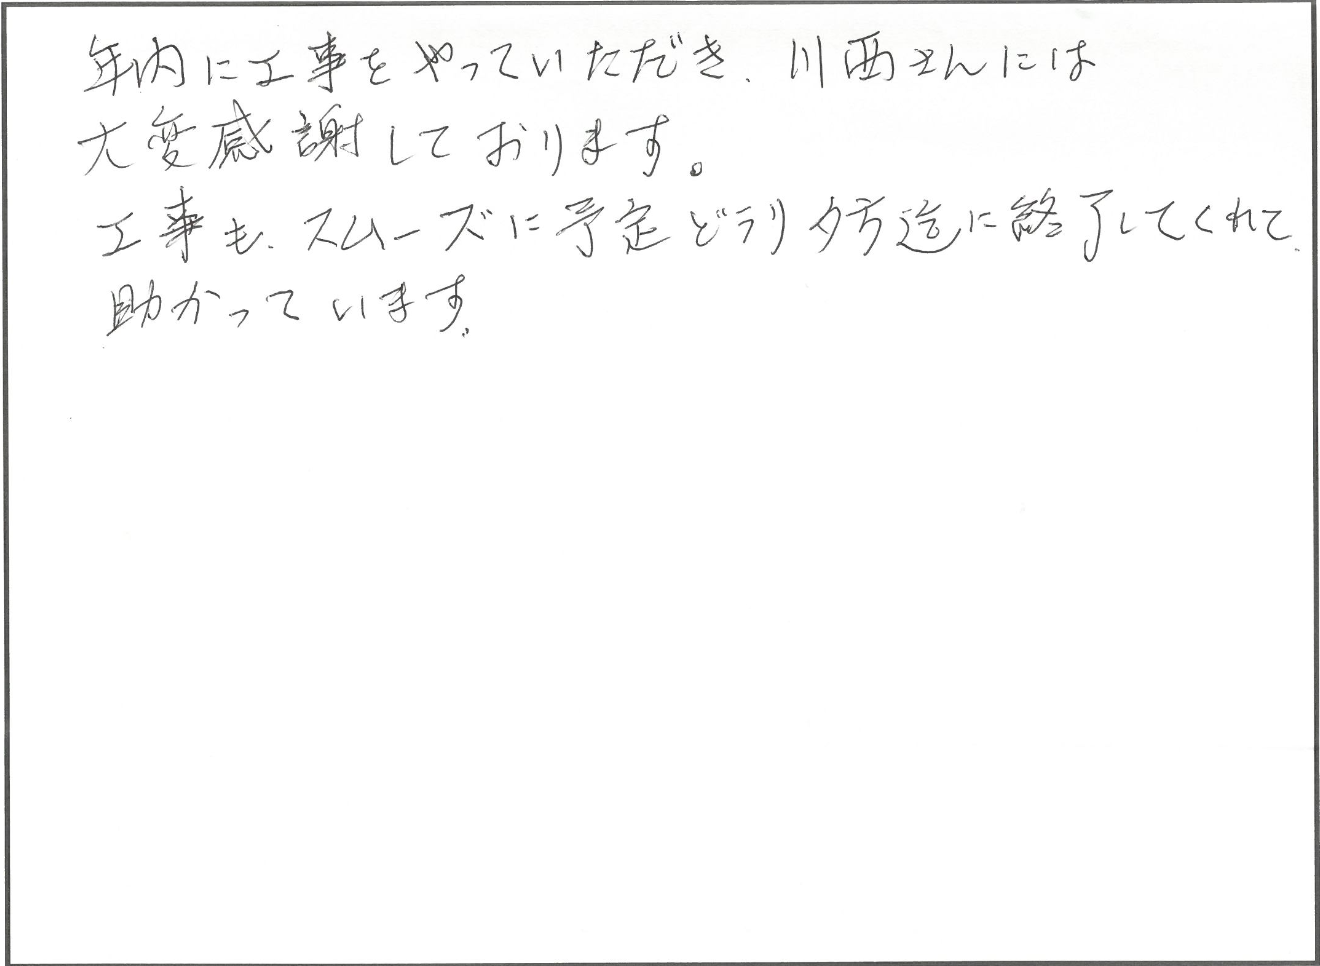 年内に工事をやっていただき、川西さんには
大変感謝しております。
工事も、スムーズに予定どうり夕方迄に終了してくれて、
助かっています。